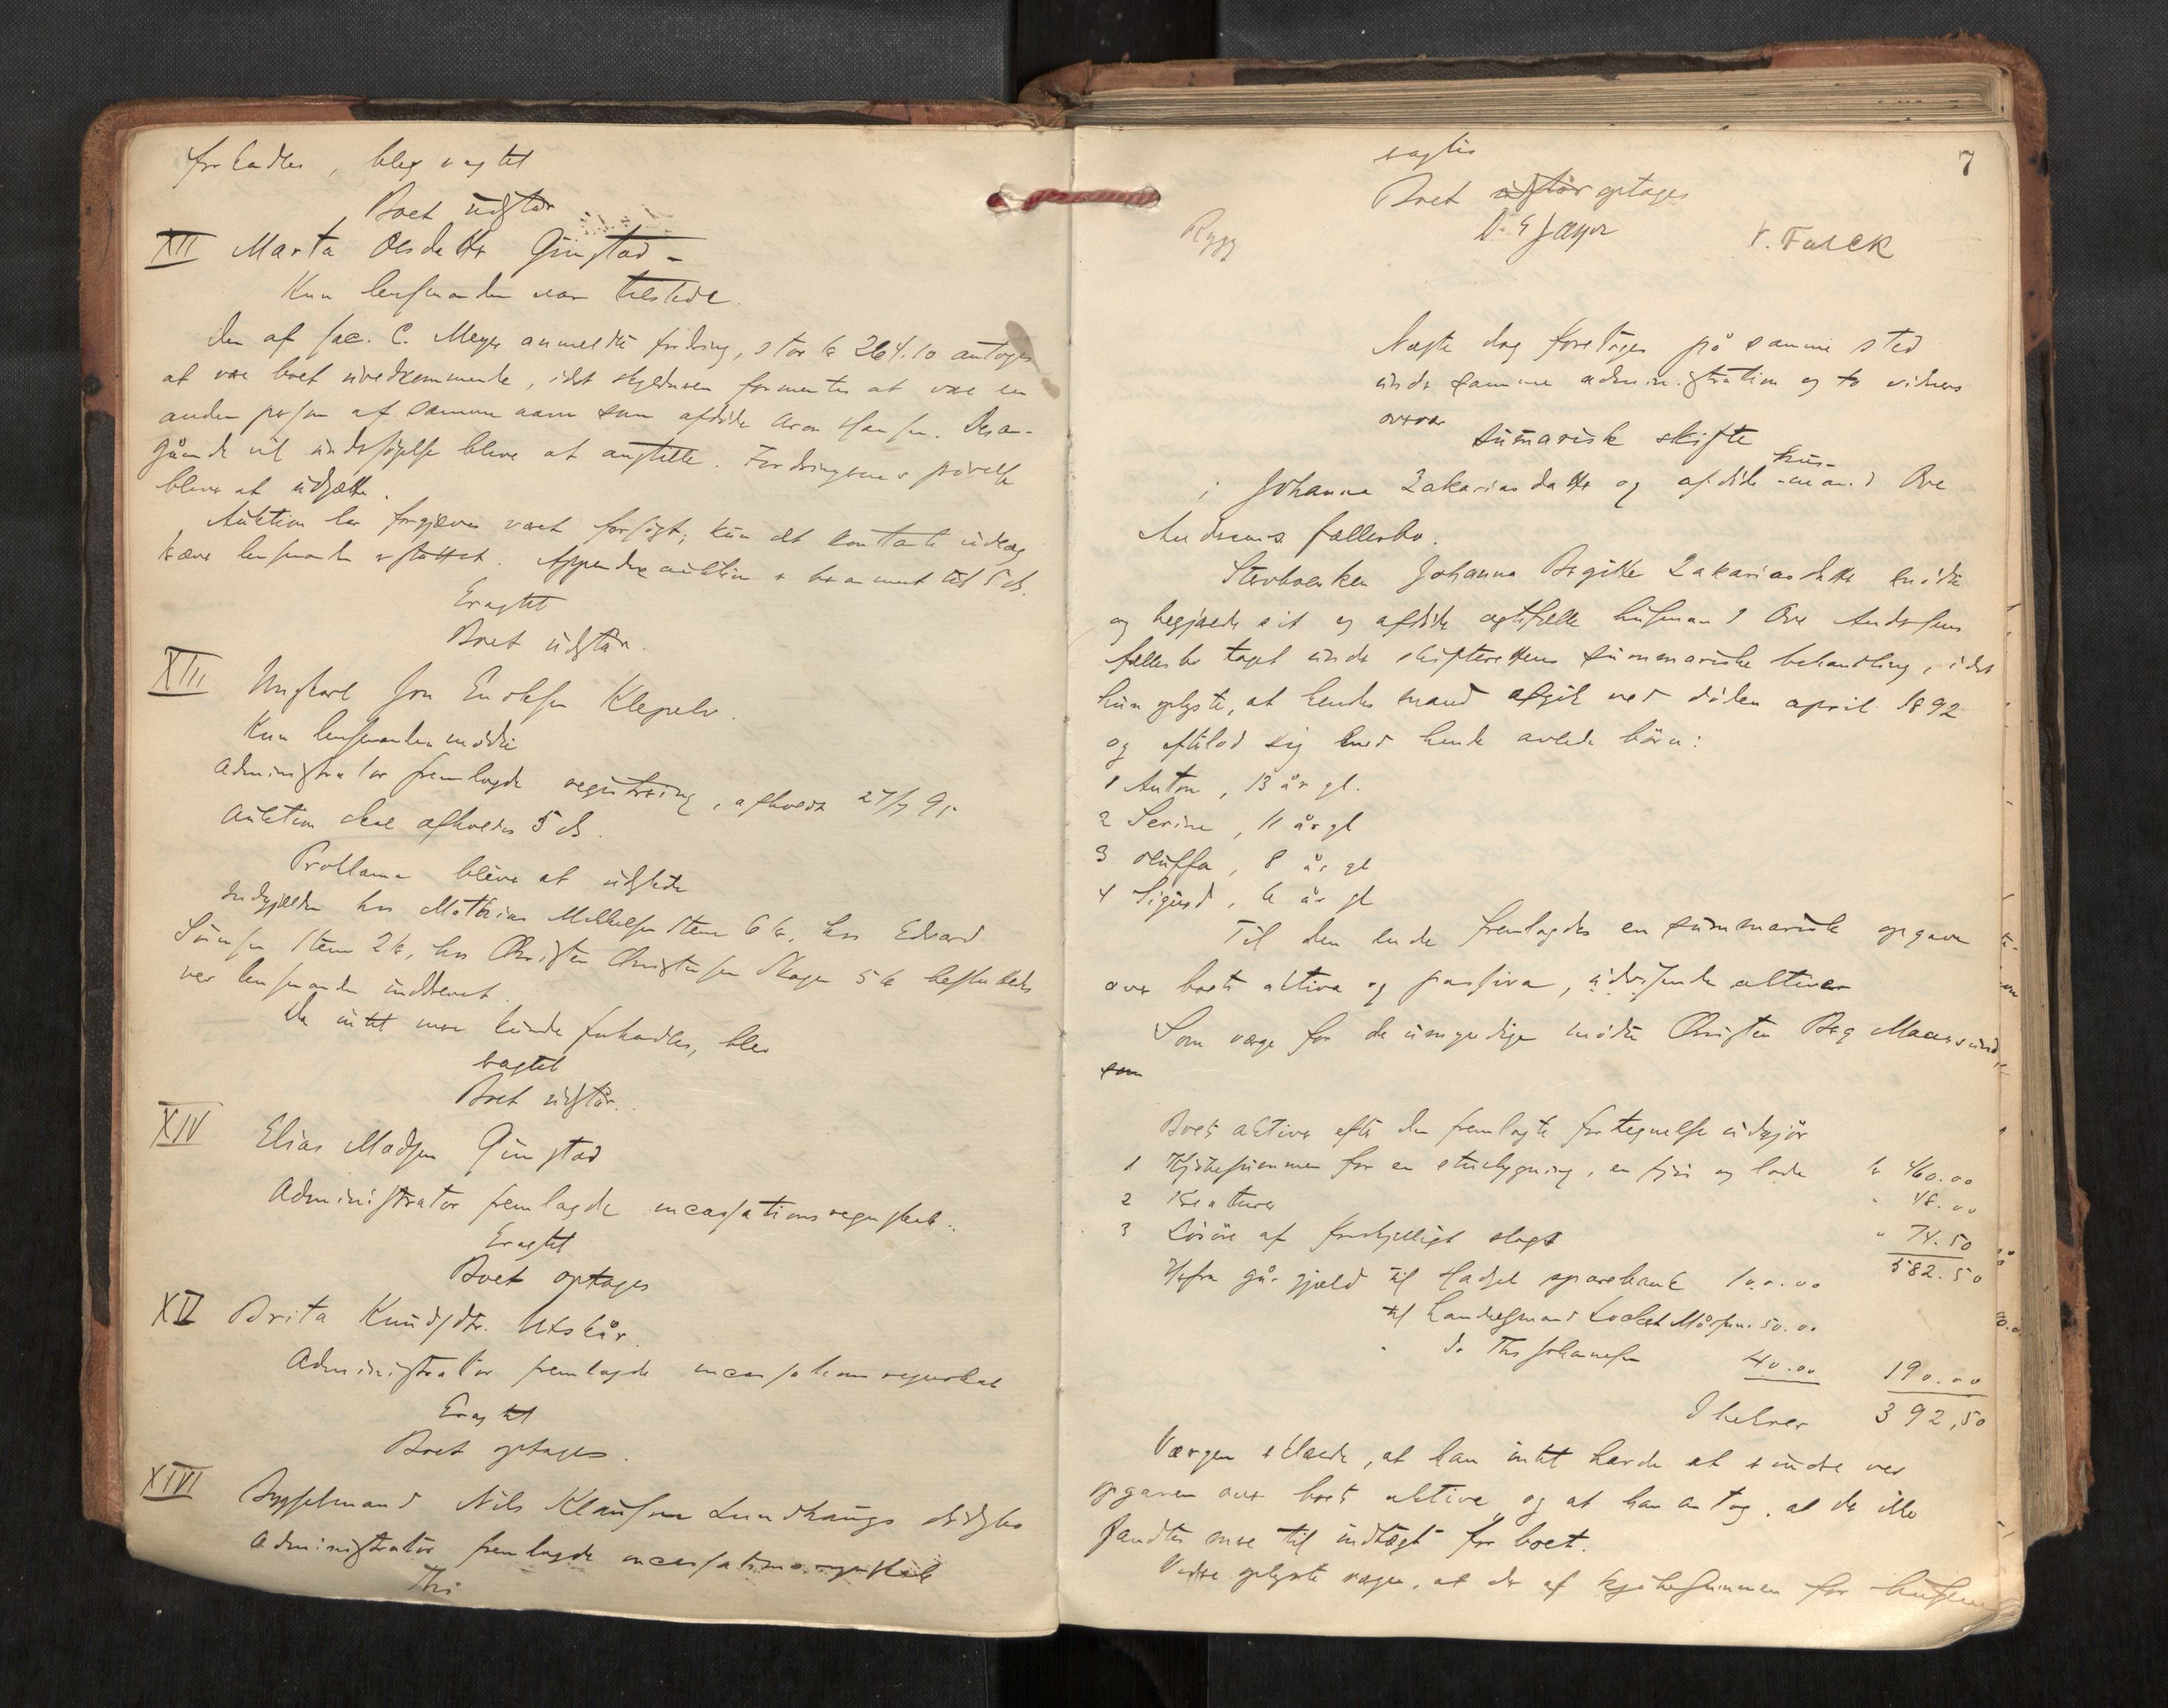 forhandles, blev eragtet
Boet udstår
XII Marta Olsdatter Guistad -
Kun lensmanden var tilstede.
Den af Jac. C. Meyer anmeldte fordring, stor kr 264.10 antoges
at være boet uvedkommende, idet skyldneren formentes at være en
anden person af samme navn som afdøde Aron Hansen. Desan-
gående vil undersøgelse blive at anstille. Fordringernes prøvelse
bliver at udsætte.
Auktion har forgjæves været forsøgt; kun det kontante udlæg
lensmanden erstattet. Appendixauktion er berammet til 5 ds.
Eragtet
Boet udstår.
XIII Ungkarl Jon Enoksen Klepelv.
Kun lensmanden mødte
Administrator fremlagde registrering, afholdt 27/7 95
Auktion skal afholdes 5 ds.
Proklama bliver at udstede
Indgjælden hos Mathias Mikkelsen Steine 6 kr, hos Edvard
Steine 2 kr, hos Christen Christensen Skagen 5 kr besluttedes
ved lensmanden inddrevet.
Da intet mere kunde forhandles, blev
eragtet
Boet udstår.
XIV Elias Madsen Guistad
Administrator fremlagde incassationsregnskab.
Eragtet
Boet optages
XV Brita Knudsdtr. Utskår.
Administrator fremlagde incassationsregnskab
Eragtet
Boet optages.
XIVI Bygselmand Nils Klausen Lundhaugs dødsbo
Administrator fremlagde incassationsregnskab
Thi
7
eragtes
Boet udstår optages
Rygg V. Falck
Næste dag foretoges på samme sted
under samme administration og to vidners
overvær
sumarisk skifte
hus-
i Johanna Zakariasdatter og afdøde mand Ove
Andreas fællesbo.
Stervboenken Johanna Birgitte Zakariasdatter mødte
og begjærede sit og afdøde ægtefælle husmand Ove Andersens
fællesbo taget under skifterettens summariske behandling, idet
hun oplyste, at hendes mand afgik ved døden april 1892
og efterlod sig med hende avlede børn:
1 Anton, 13 år gl.
2 Serine, 11 år gl
3 Oluffa, 8 år gl
4 Sigurd, 6 år gl
Til den ende fremlagdes en summarisk opgave
over boets aktiva og passiva, udvisende aktiver
Som værge for de umyndige mødte Christen Berg Maarsund
som
Boets aktiva efter den fremlagte fortegnelse udgjør
1 Kjøbesummen for en stuebygning, en fjøs og lade kr 460.00
2 Kreaturer " 48.00
3 Løsøre af forskjelligt slags " 74.50
582.50
Herfra går gjæld til Hadsel sparebank 100.00
til Landhandelsmand Lockert 50.00
" do Ths Johannesen 40.00 190.00
I behov 392,50
Værgen erklærede, at han intet havde at erindre ved
opgaven over boets aktiva, og at han antog, at der ikke
fandtes mere til indtægt for boet.
Videre oplyste værgen, at der af kjøbesummen for husene